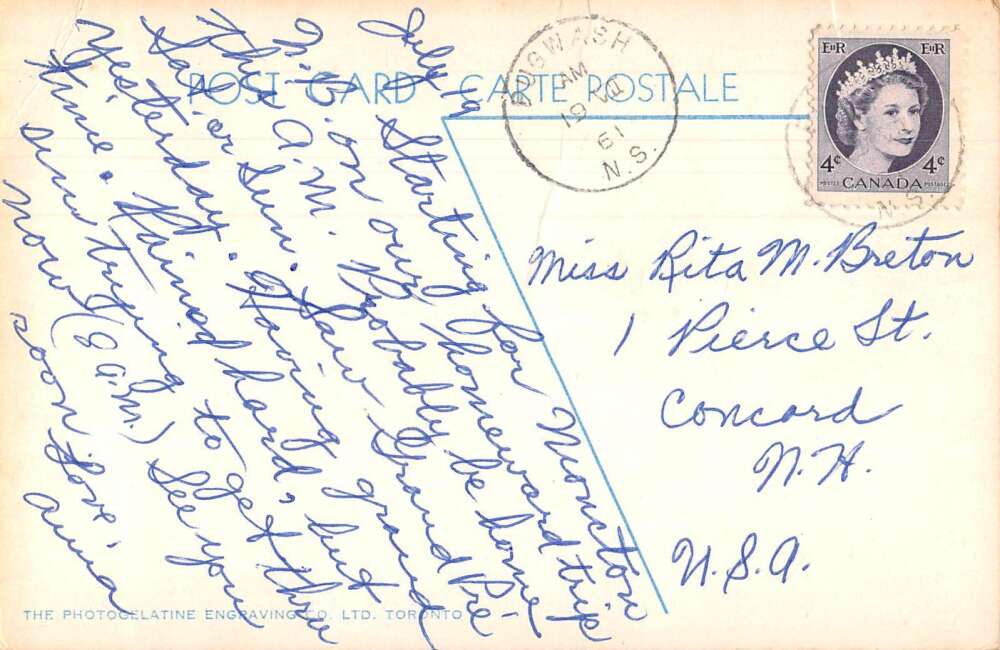 POST CARD CARTE POSTALE
PUGWASH
AM
19 VII
61
N.S.
EIIR EIIR
4¢ 4¢
POSTES CANADA POSTAGE
N.S.
July 19
Starting for Moncton
N.B. on our homeward trip
this A.M. Probably be home
Sat. or Sun. Saw Grand Pré
Yesterday. Having grand
time. Rained hard, but
sun trying to get thru
now (8 a.m.) See you
soon Love,
Anna
Miss Rita M. Breton
1 Pierce St.
Concord
N.H.
U.S.A.
THE PHOTOGELATINE ENGRAVING CO. LTD. TORONTO